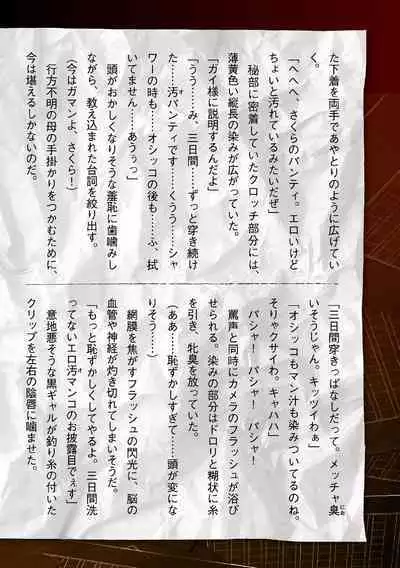 た下着を両手であやとりのように広げてい
く。
「へへへ、さくらのパンティ。エロいけど
ちょいと汚れているみたいだぜ」
秘部に密着していたクロッチ部分には、
薄黄色い縦長の染みが広がっていた。
「ガイ様に説明するんだよ」
「うう……み、三日間……ずっと穿き続け
た……汚パンティです……くうう……シャ
ワーの時も……オシッコの後も……ふ、拭
いてません……あうぅっ」
頭がおかしくなりそうな羞恥に歯噛みし
ながら、教え込まれた台詞を絞り出す。
(今はガマンよ、さくら!)
行方不明の母の手掛かりをつかむために、
今は堪えるしかないのだ。
「三日間穿きっぱなしだって。メッチャ臭
いそうじゃん。キッツイわぁ」
「オシッコもマン汁も染みついてるのね。
そりゃクサイわ。キャハハ」
バシャ! バシャ! バシャ!
罵声と同時にカメラのフラッシュが浴び
せられる。染みの部分はドロリと糊状に糸
を引き、牝臭を放っていた。
(ああ……恥ずかしすぎて……頭が変にな
りそう……)
網膜を焦がすフラッシュの閃光に、脳の
血管や神経が灼き切れてしまいそうだ。
「もっと恥ずかしくしてやるよ。三日間洗
ってないエロ汚マンコのお披露目でぇす」
意地悪そうな黒ギャルが釣り糸の付いた
クリップを左右の陰唇に噛ませた。